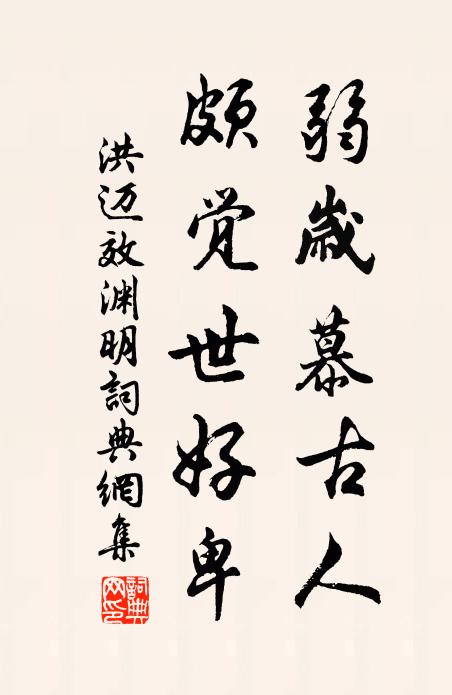 弱歳慕古人
頗覚世好卑
洪迈效渊明詞典網集
詞典网印